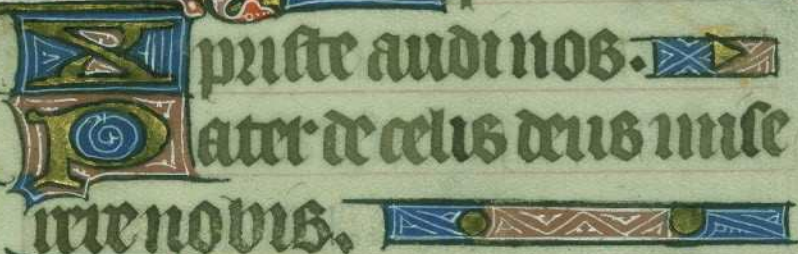 Xpriste audi nos.
Pater de celis deus mise
rere nobis.